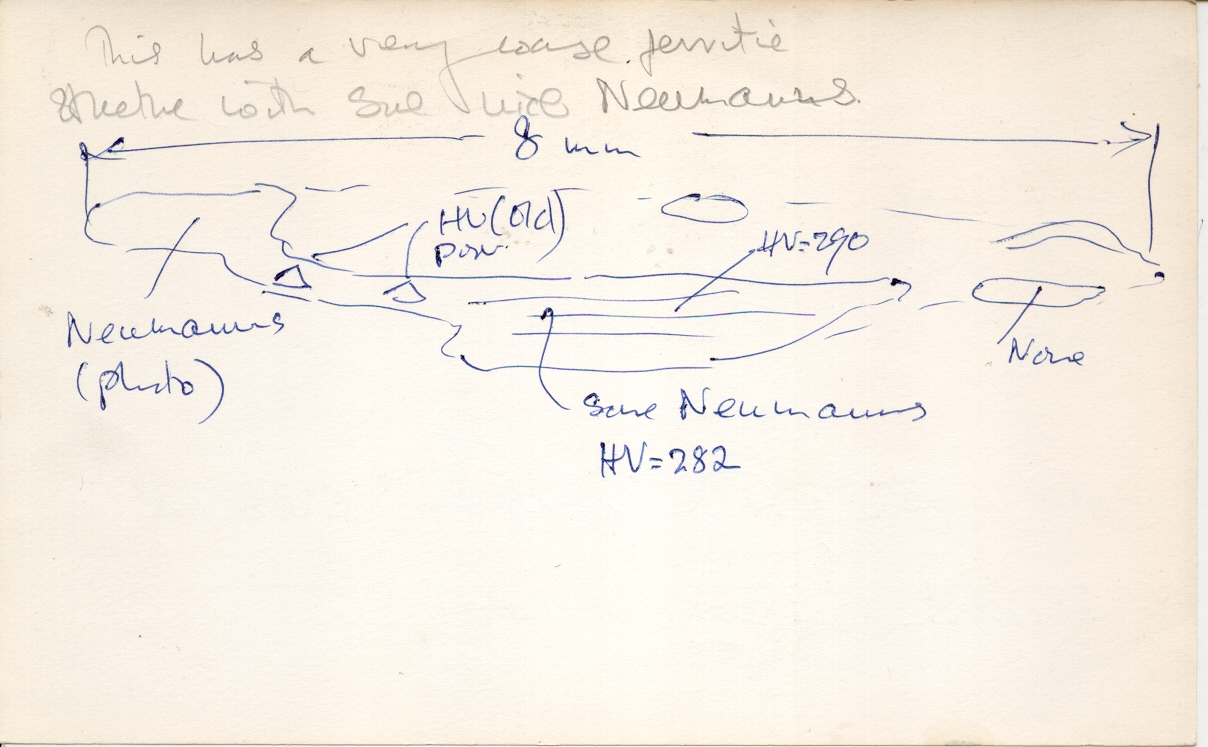 This has a very coarse ferritic
structure with some nice Neumanns.
8 mm
HV (Old)
HV=290
Neumanns
(photo)
None
Some Neumanns
HV=282